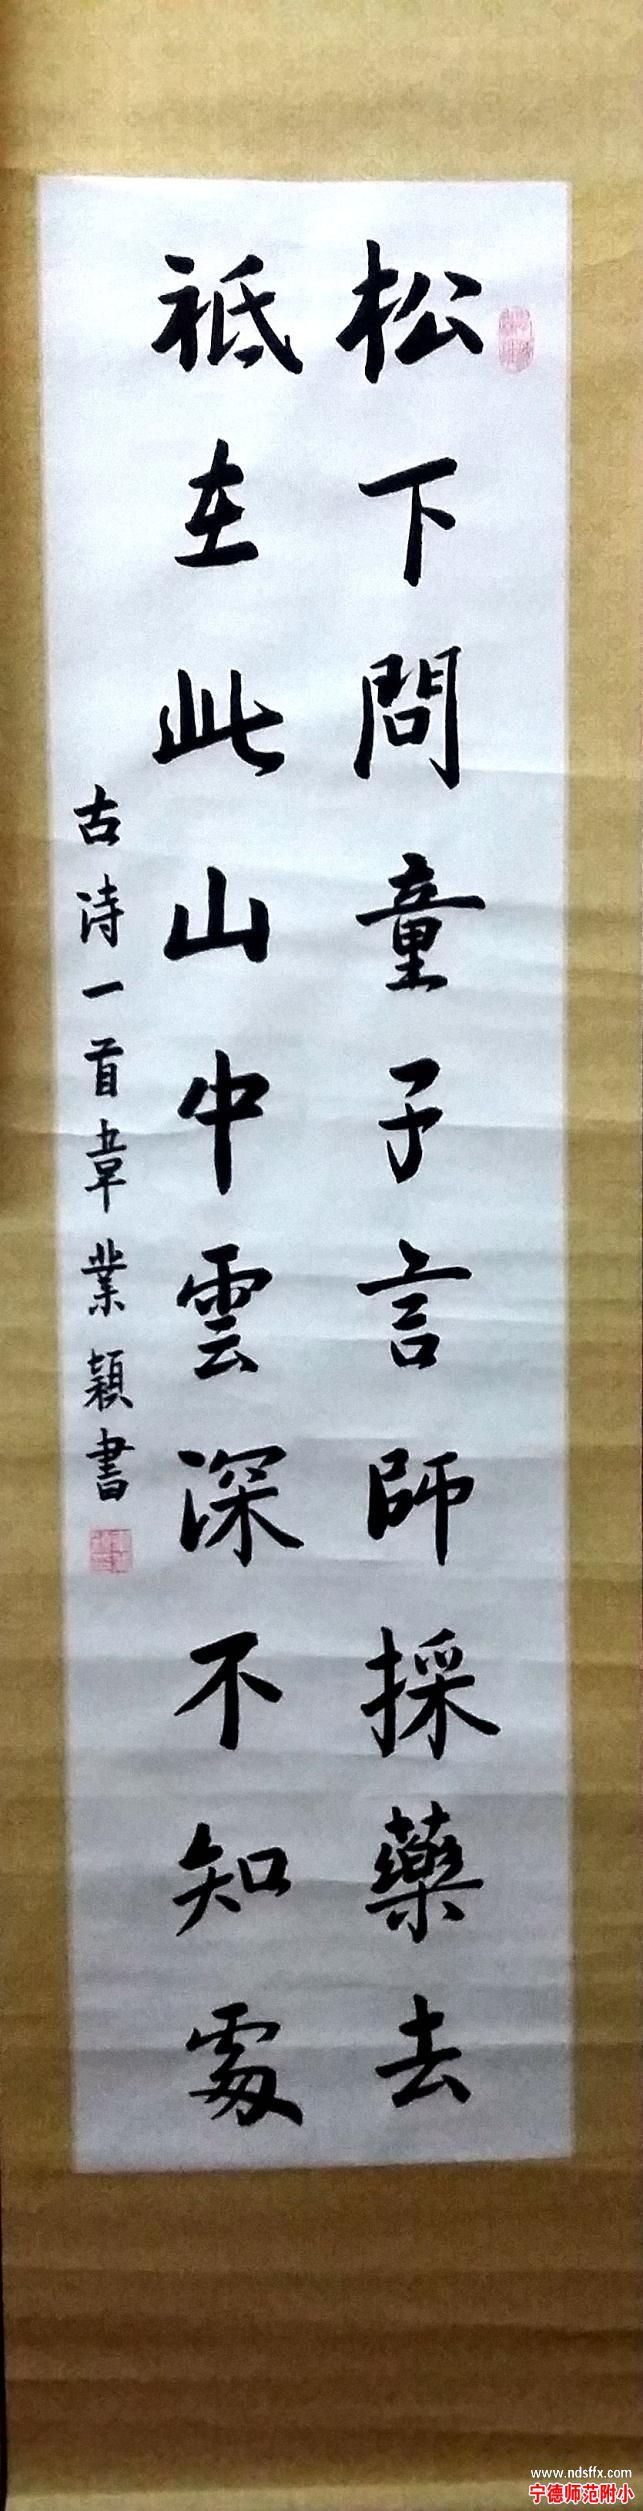 松下問童子言師採藥去
祗在此山中雲深不知處
古诗一首章業穎書
www.ndsffx.com
宁德师范附小